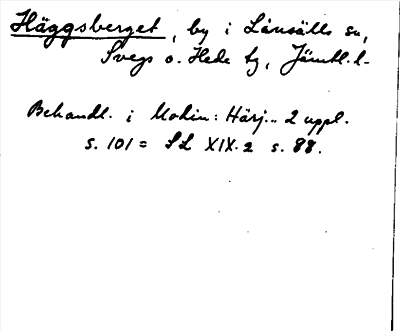 Häggsberget, by i Linsälls sn,
Svegs o. Hede tg, Jämtl. l.
Behandl. i Modin: Härj... 2 uppl.
s. 101 = SL XIX.2 s. 88.